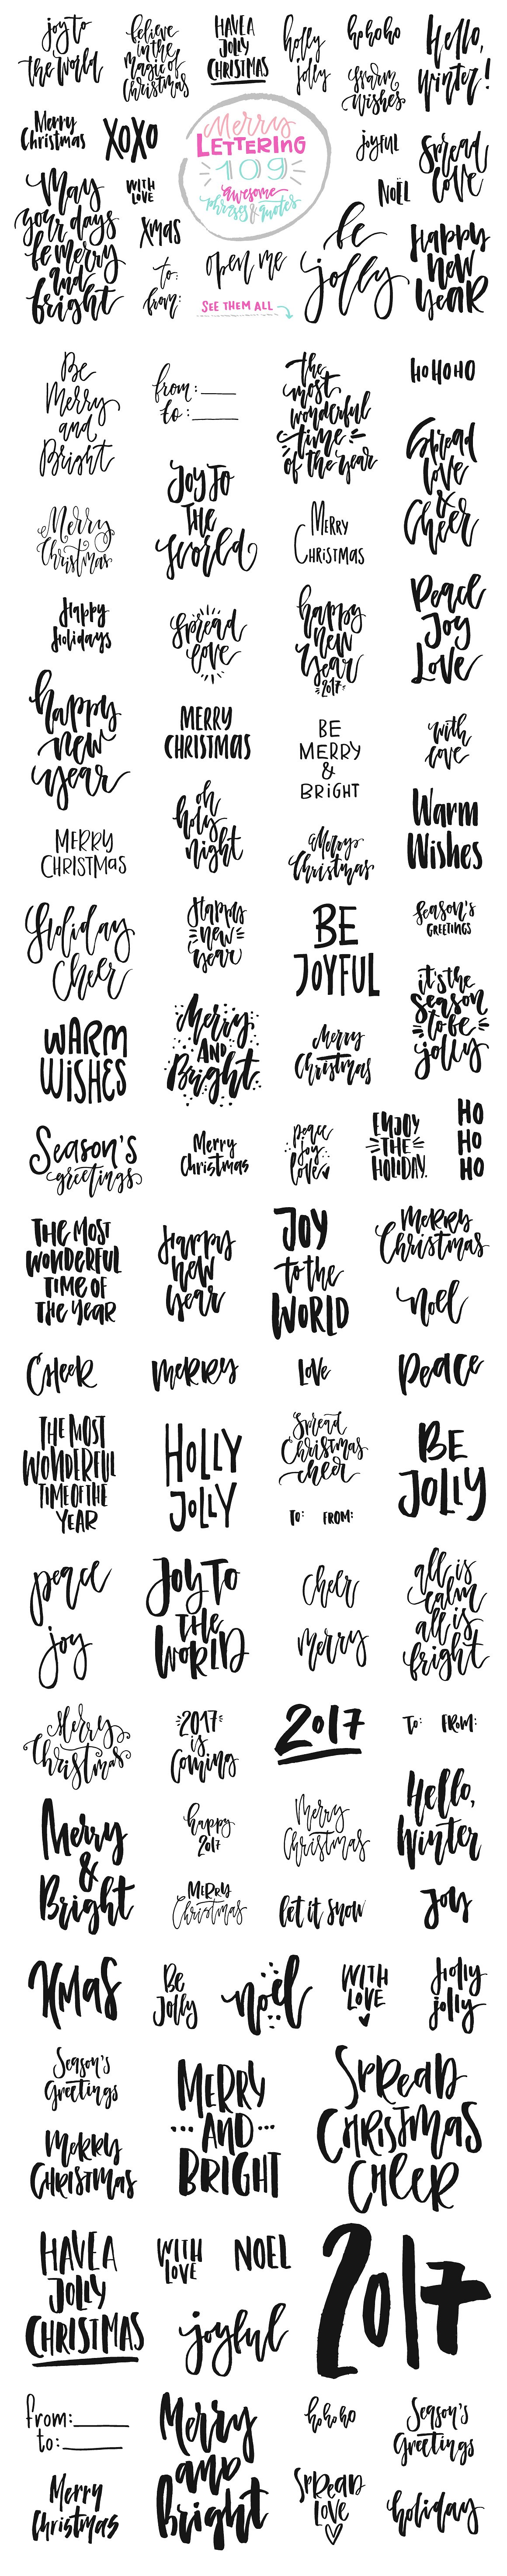 joy to
the world
believe
in the
magic of
Christmas
HAVE A
JOLLY
CHRISTMAS
holly
jolly
hohoho
Warm
wishes
Hello,
winter!
Merry
Christmas
XOXO
Merry
LETTERING
109
awesome
phrases & quotes
joyful
Spread
love
NOËL
May
your days
be merry
and
bright
WITH
LOVE
Xmas
to:
from:
open me
SEE THEM ALL
be
jolly
Happy
New
Year
Be
Merry
and
Bright
from:
to:
the
most
wonderful
time
of the year
HOHOHO
Spread
love
&
Cheer
Merry
Christmas
Joy To
The
World
Merry
Christmas
Happy
Holidays
Spread
love
happy
new
year
2017
Peace
Joy
Love
happy
new
year
MERRY
CHRISTMAS
BE
MERRY
&
BRIGHT
with
love
MERRY
CHRISTMAS
oh
holy
night
Merry
Christmas
Warm
Wishes
Holiday
Cheer
Happy
new
year
BE
JOYFUL
Season's
GREETINGS
WARM
WISHES
Merry
AND
Bright
Merry
Christmas
it's the
season
to be
jolly
Season's
greetings
Merry
Christmas
peace
joy
love
ENJOY
THE
HOLIDAY.
HO
HO
HO
THE MOST
WONDERFUL
TIME OF
THE YEAR
Happy
new
year
JOY
to the
WORLD
Merry
Christmas
noel
CHEER
MERRY
LOVE
Peace
THE MOST
WONDERFUL
TIME OF THE
YEAR
HOLLY
JOLLY
Spread
Christmas
cheer
TO: FROM:
BE
JOLLY
peace
joy
Joy To
THE
WORLD
cheer
merry
all is
calm
all is
bright
Merry
Christmas
2017
is
Coming
2017
To: From:
Merry
&
Bright
happy
2017
Merry
Christmas
Hello,
Winter
MERRY
Christmas
let it snow
Joy
XMAS
Be
Jolly
noel
WITH
LOVE
Holly
jolly
Season's
Greetings
MERRY
AND
BRIGHT
SPREAD
CHRISTMAS
CHEER
MERRY
CHRISTMAS
HAVE A
JOLLY
CHRISTMAS
WITH
LOVE
NOEL
joyful
2017
from:
to:
Merry
and
bright
hohoho
Season's
Greetings
Merry
Christmas
SPREAD
LOVE
holiday